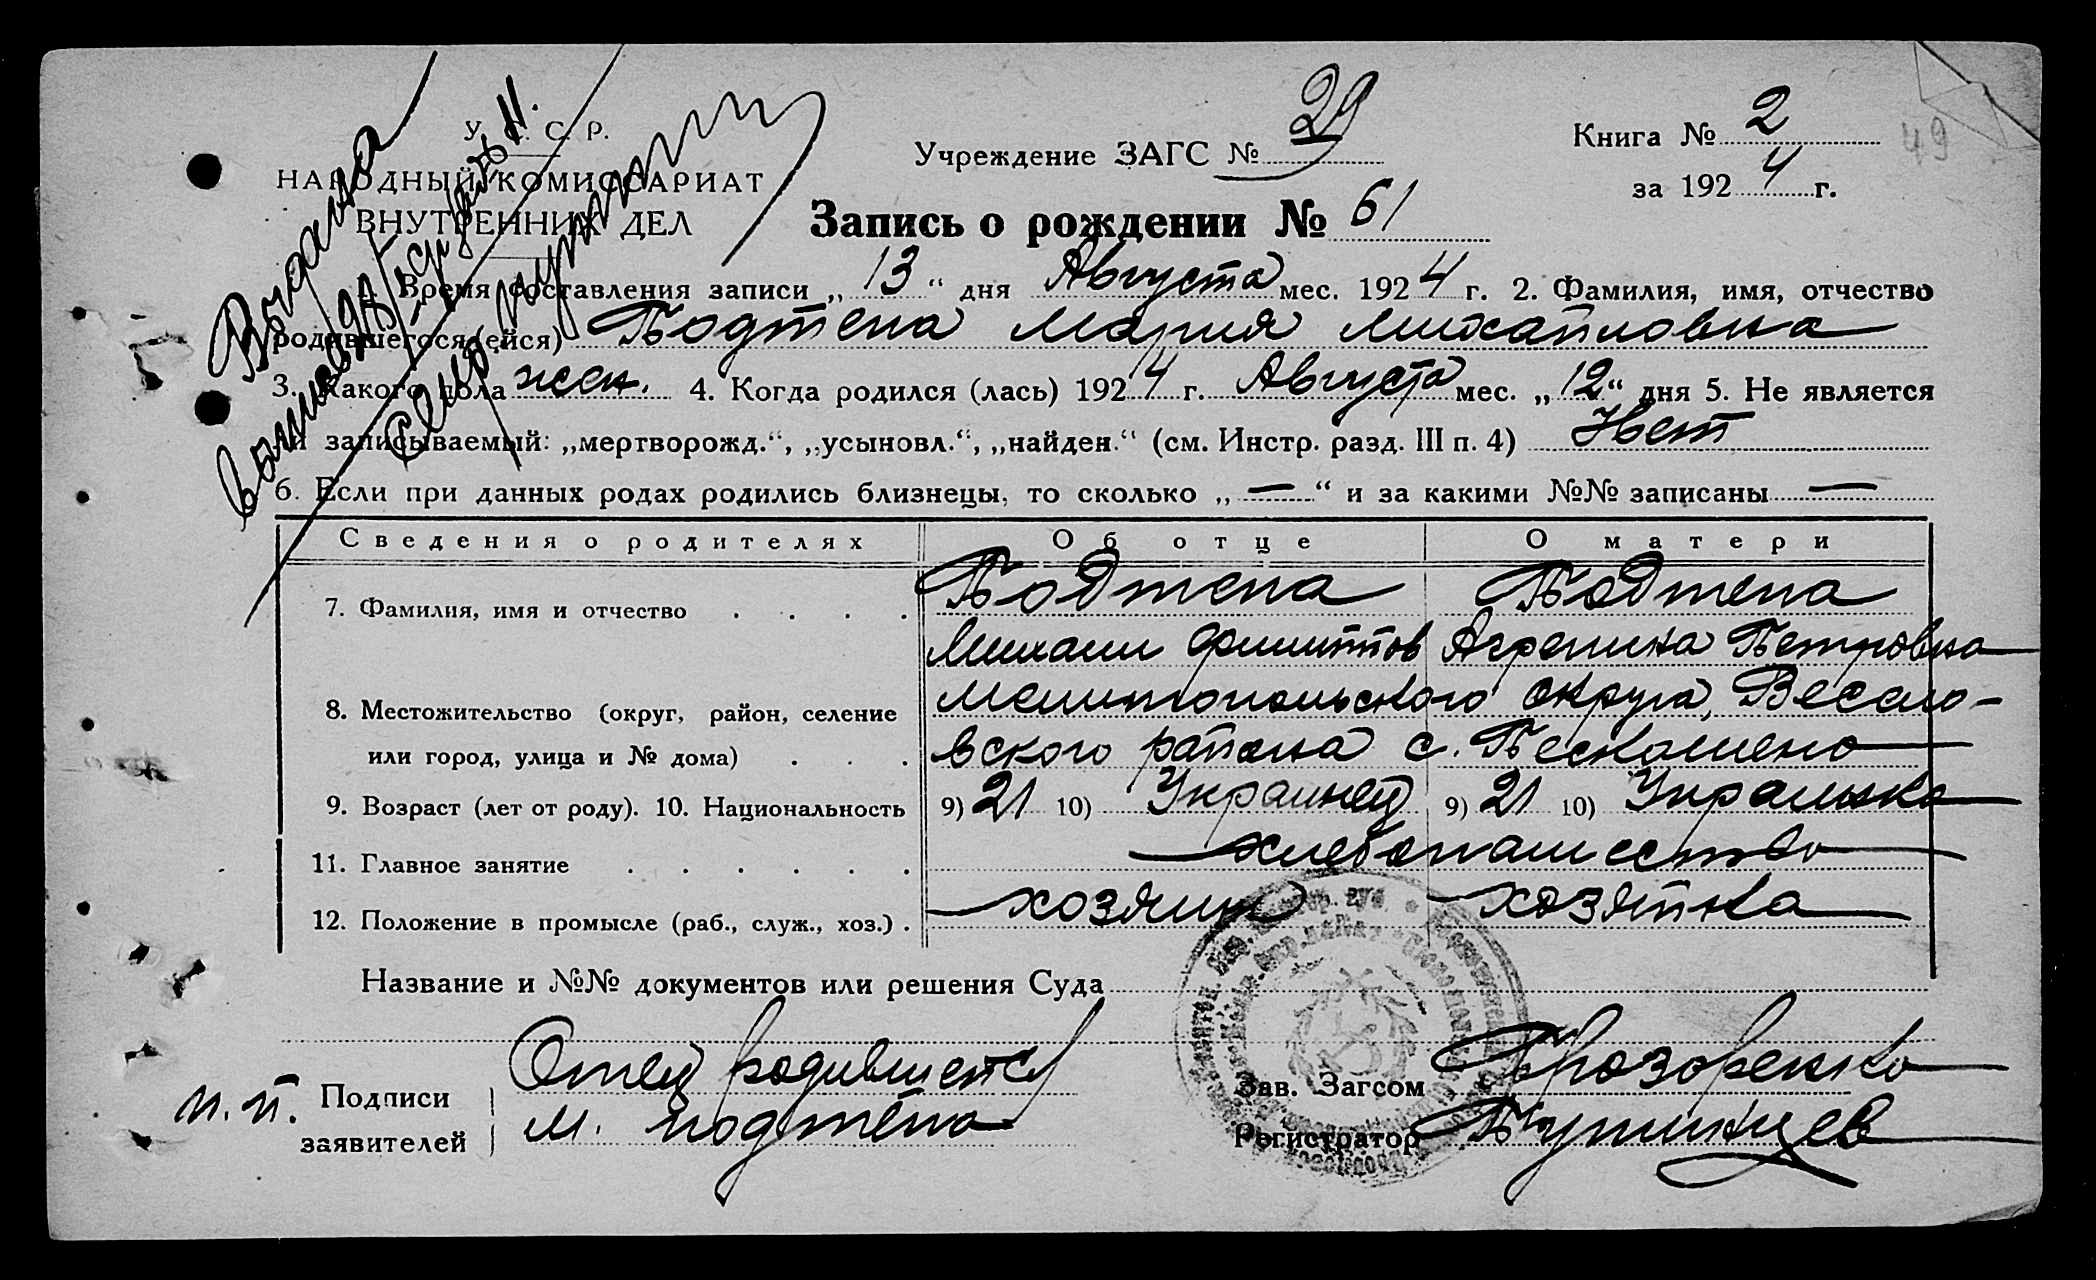 У. С. С. Р.
НАРОДНЫЙ КОМИССАРИАТ
ВНУТРЕННИХ ДЕЛ
Учреждение ЗАГС № 29
Книга № 2
за 1924 г.
49
Запись о рождении № 61
Выдана
1. Время составления записи „13“ дня Августа мес. 1924 г. 2. Фамилия, имя, отчество
родившегося (ейся) Подтепа Мария Михайловна
3. Какого пола жен. 4. Когда родился (лась) 1924 г. Августа мес. „12“ дня 5. Не является
ли записываемый: „мертворожд.“, „усыновл.“, „найден.“ (см. Инстр. разд. III п. 4) Нет
6. Если при данных родах родились близнецы, то сколько „—“ и за какими №№ записаны —
Сведения о родителях Об отце О матери
7. Фамилия, имя и отчество Подтепа Подтепа
Михаил Филиппов Агрепина Петровна
8. Местожительство (округ, район, селение Мелитопольского округа, Весело-
или город, улица и № дома) вского района с.
9. Возраст (лет от роду). 10. Национальность 9) 21 10) Украинец 9) 21 10) Украинка
11. Главное занятие хлебопашество
12. Положение в промысле (раб., служ., хоз.) хозяин хозяйка
Название и №№ документов или решения Суда
п.п. Подписи заявителей Отец родившейся
М. Подтепа
Зав. Загсом
Регистратор